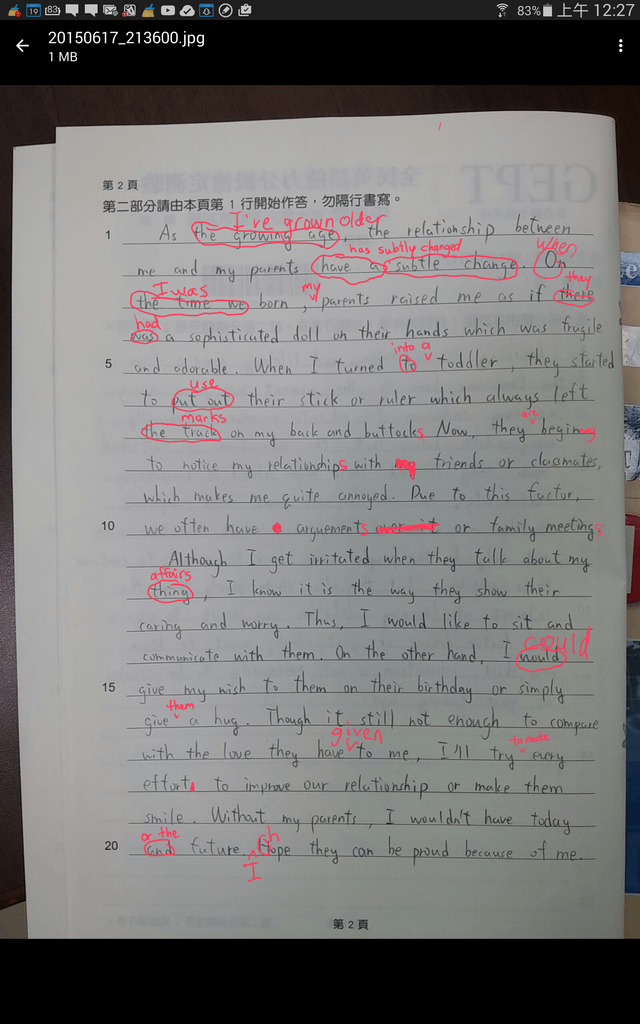 19
83
83%
上午 12:27
20150617_213600.jpg
1 MB
GEPT
第 2 頁
第二部分請由本頁第 1 行開始作答，勿隔行書寫。
I've grown older
1 As the growing age, the relationship between
has subtly changed when
me and my parents have a subtle change. On
I was my they
the time we born, parents raised me as if there
had
was a sophisticated doll on their hands which was fragile
into a
5 and adorable. When I turned to toddler, they started
use
to put out their stick or ruler which always left
marks are
the track on my back and buttocks Now, they begining
to notice my relationships with friends or classmates,
which makes me quite annoyed. Due to this factor,
10 we often have arguements over it or family meetings
Although I get irritated when they talk about my
affairs
thing, I know it is the way they show their
caring and worry. Thus, I would like to sit and
could
communicate with them. On the other hand, I would
15 give my wish to them on their birthday or simply
them
give a hug. Though it still not enough to compare
given to make
with the love they have to me, I'll try every
effort to improve our relationship or make them
smile. Without my parents, I wouldn't have today
or the h
20 and future. Hope they can be proud because of me.
I
第 2 頁